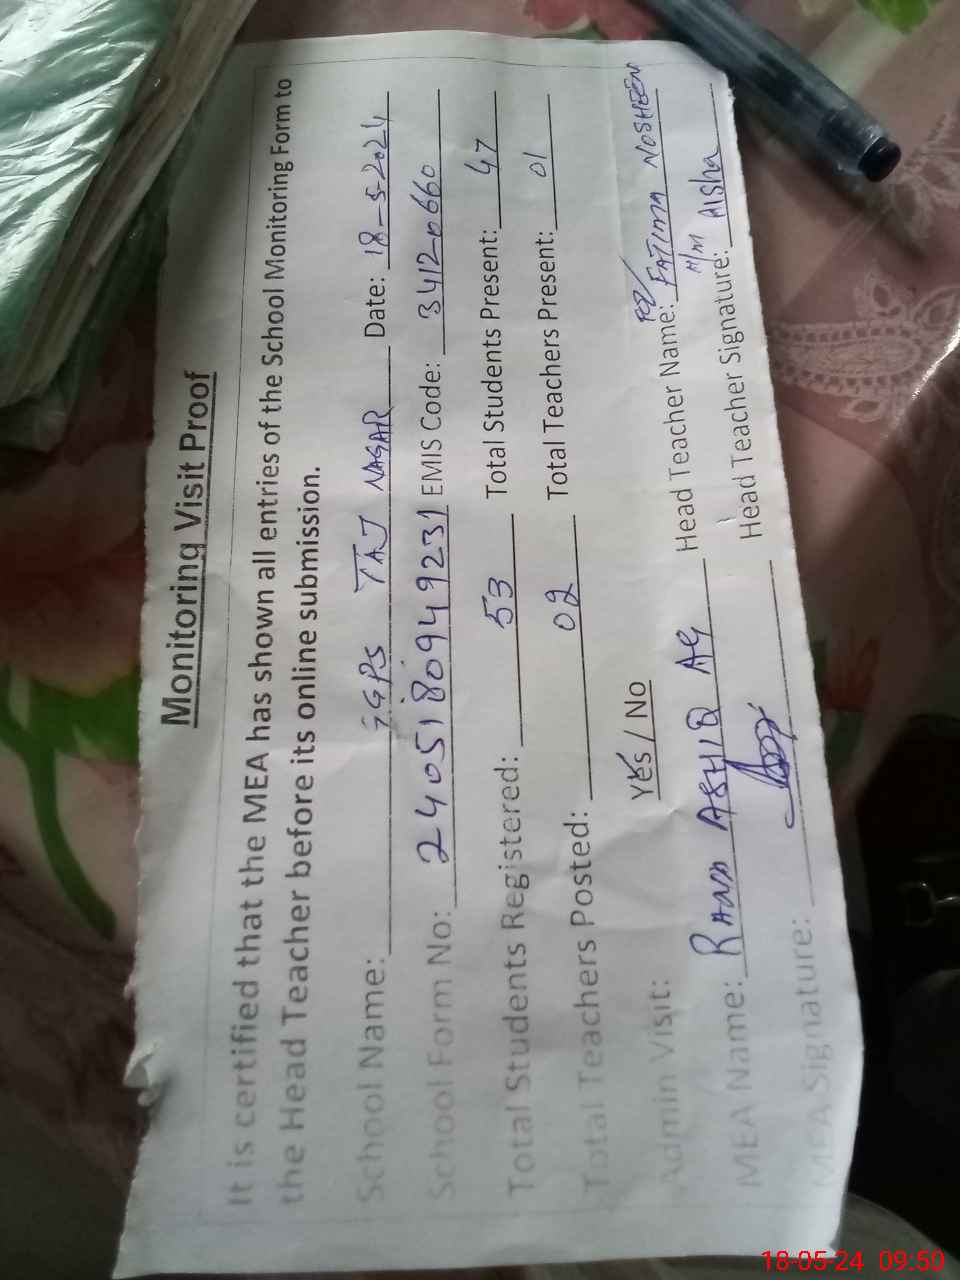 Monitoring Visit Proof
It is certified that the MEA has shown all entries of the School Monitoring Form to
the Head Teacher before its online submission.
School Name: GGPS TAJ NAGAR Date: 18-5-2024
School Form No: 2405180949231 EMIS Code: 34120660
Total Students Registered: 53 Total Students Present: 47
Total Teachers Posted: 02 Total Teachers Present: 01
Admin Visit: Yes / No
MEA Name: RANA ASHIQ Ali Head Teacher Name: for FATIMA NOSHEEN
MEA Signature: Head Teacher Signature: Aisha
18-05-24 09:50